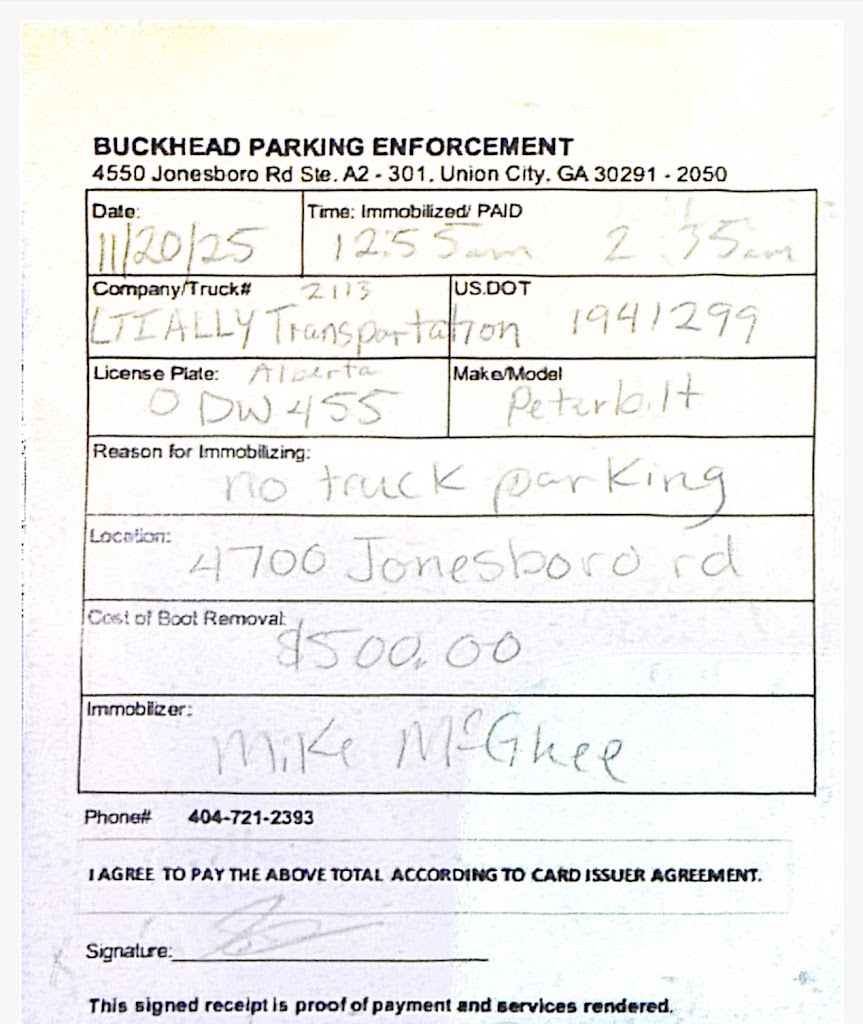 BUCKHEAD PARKING ENFORCEMENT
4550 Jonesboro Rd Ste. A2 - 301, Union City, GA 30291 - 2050
Date: Time: Immobilized/ PAID
11/20/25 12:55am 2:35am
Company/Truck# 2113 US.DOT
LTIALLY Transportation 1941299
License Plate: Alberta Make/Model
0DW455 Peterbilt
Reason for Immobilizing:
no truck parking
Location:
4700 Jonesboro rd
Cost of Boot Removal:
$500.00
Immobilizer:
Mike McGhee
Phone# 404-721-2393
I AGREE TO PAY THE ABOVE TOTAL ACCORDING TO CARD ISSUER AGREEMENT.
Signature:
This signed receipt is proof of payment and services rendered.